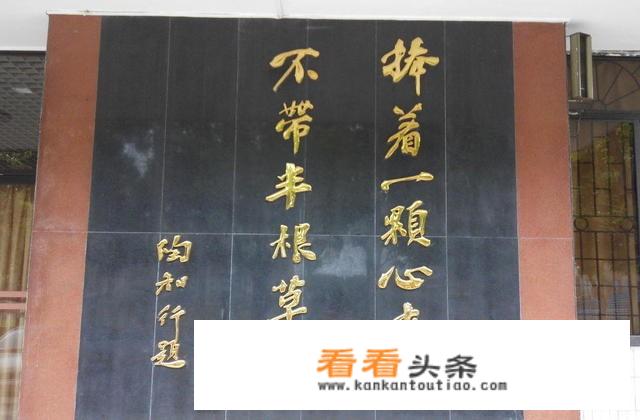 捧着一顆心
不帶半根草
陶知行題
看看头条
www.kankantoutiao.com